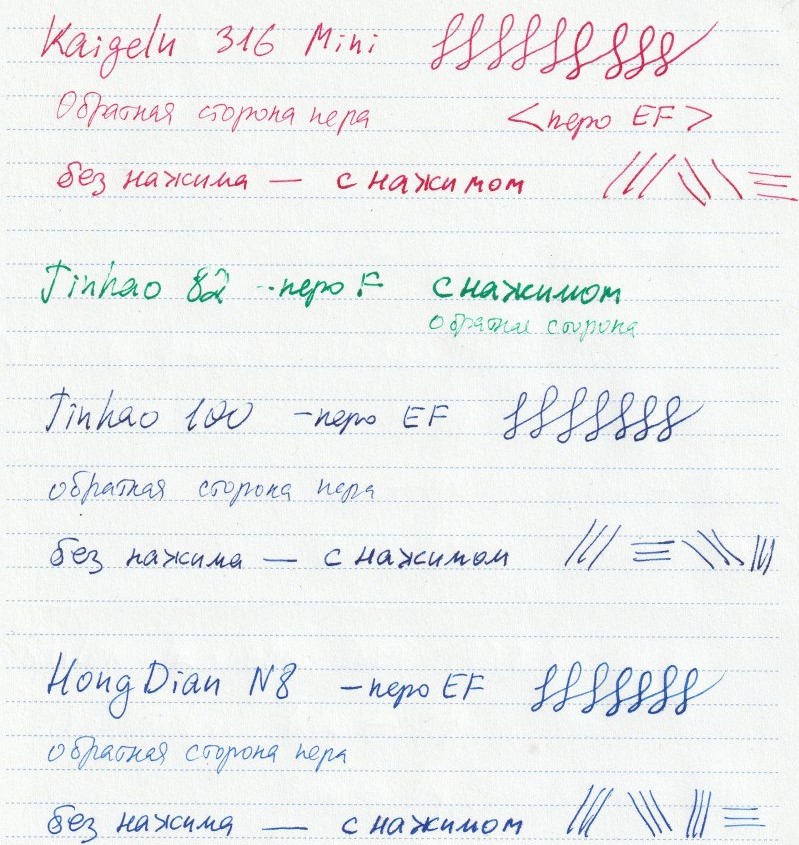 Kaigelu 316 Mini
Обратная сторона пера <перо EF>
без нажима — с нажимом
Jinhao 82 - перо F с нажимом
обратная сторона
Jinhao 100 - перо EF
обратная сторона пера
без нажима — с нажимом
HongDian N8 - перо EF
обратная сторона пера
без нажима — с нажимом